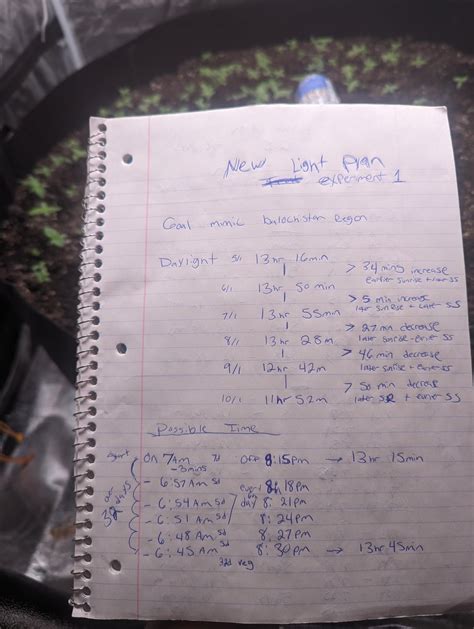 New Light Plan
experiment 1
Goal mimic balochistan Region
Daylight 5/1 13 hr 16min
> 34 mins increase
earlier sunrise + later SS
6/1 13 hr 50 min
> 5 min increase
later sunrise + later SS
7/1 13 hr 55min
> 27 min decrease
later sunrise - earlier SS
8/1 13 hr 28 m
> 46 min decrease
later sunrise + earlier SS
9/1 12 hr 42 m
> 50 min decrease
later SR + earlier SS
10/1 11 hr 52 m
Possible Time
Start ON 7AM 7d OFF 8:15pm → 13 hr 15min
-3mins
- 6:57 AM 5d every 8:18pm
- 6:54 AM 5d day 8:21pm
- 6:51 AM 5d 8:24pm
- 6:48 AM 5d 8:27pm
- 6:45 AM 5d 8:30pm → 13hr 45min
over
32 days
32d veg